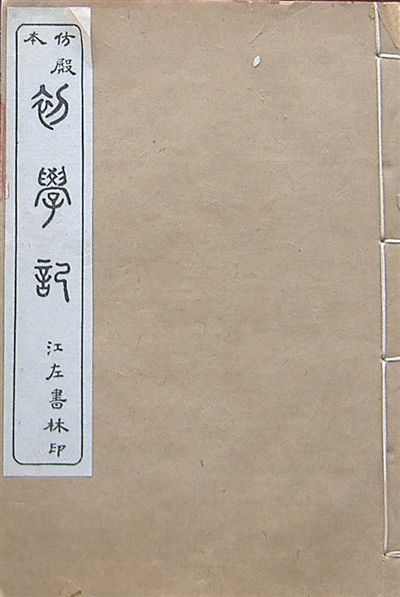 仿殿本
初學記
江左書林印